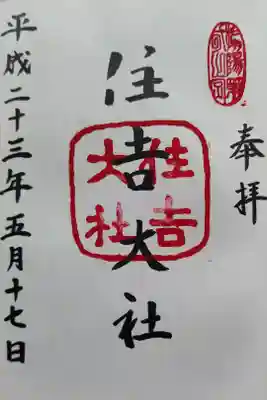 奉拝
住吉大社
住吉
大社
平成二十三年五月十七日